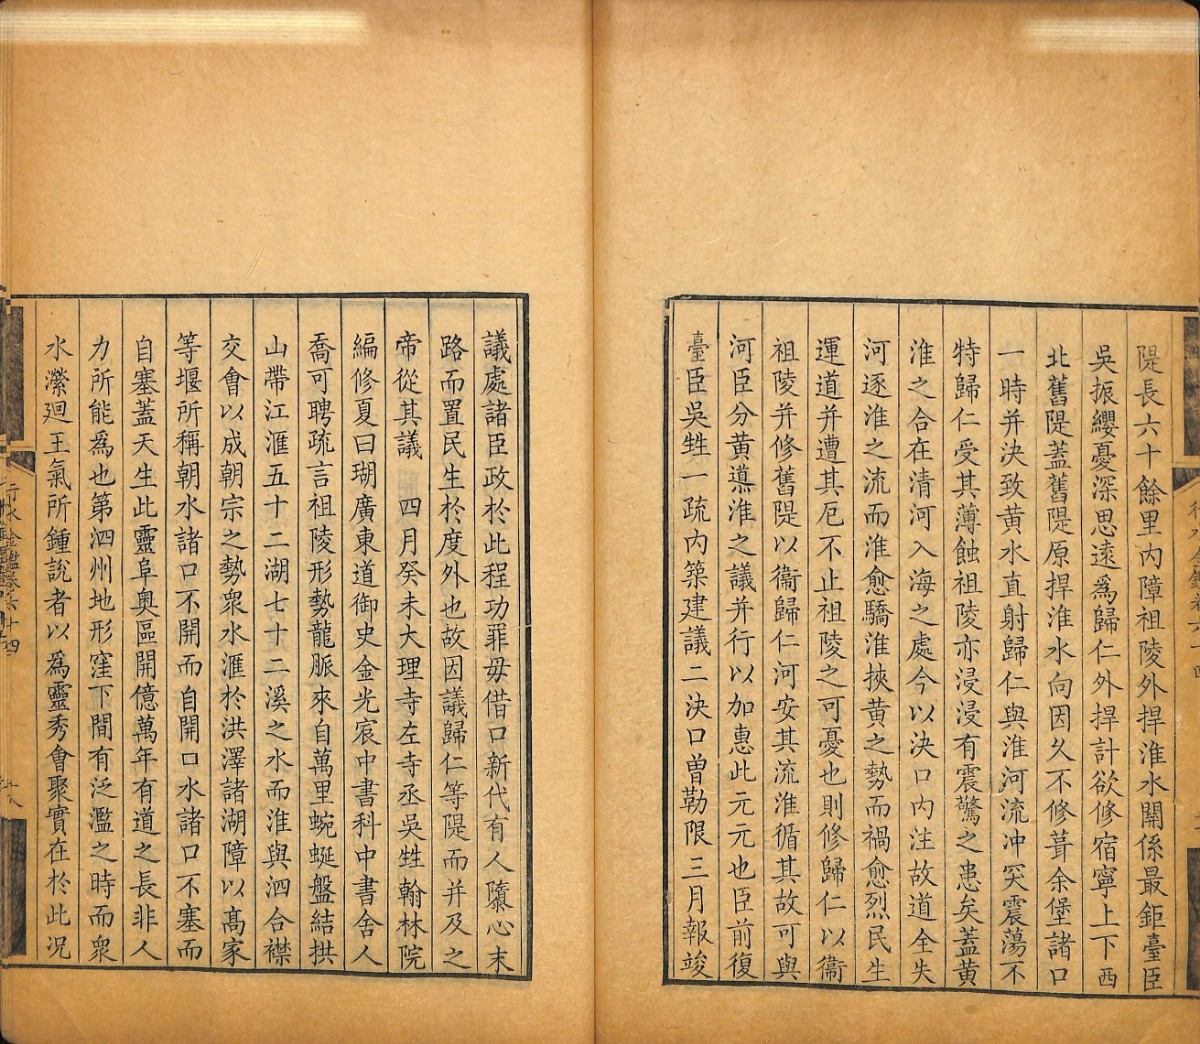 隄長六十餘里内障祖陵外捍淮水關係最鉅臺臣
吳振纓憂深思遠爲歸仁外捍計欲修宿寧上下西
北舊隄蓋舊隄原捍淮水向因久不修葺余堡諸口
一時并決致黄水直射歸仁與淮河流冲突震蕩不
特歸仁受其薄蝕祖陵亦浸浸有震驚之患矣蓋黄
淮之合在清河入海之處今以決口内注故道全失
河逐淮之流而淮愈驕淮挾黄之勢而禍愈烈民生
運道并遭其厄不止祖陵之可憂也則修歸仁以衞
祖陵并修舊隄以衞歸仁河安其流淮循其故可與
河臣分黄導淮之議并行以加惠此元元也臣前復
臺臣吳甡一疏内築建議二決口曽勒限三月報竣
議處諸臣政於此程功罪毋借口新代有人隳心末
路而置民生於度外也故因議歸仁等隄而并及之
帝從其議　四月癸未大理寺左寺丞吳甡翰林院
編修夏曰瑚廣東道御史金光宸中書科中書舍人
喬可聘疏言祖陵形勢龍脈來自萬里蜿蜒盤結拱
山帶江滙五十二湖七十二溪之水而淮與泗合襟
交會以成朝宗之勢衆水滙於洪澤諸湖障以髙家
等堰所稱朝水諸口不開而自開口水諸口不塞而
自塞蓋天生此靈阜奥區開億萬年有道之長非人
力所能爲也第泗州地形窪下間有泛濫之時而衆
水瀠迴王氣所鍾說者以爲靈秀會聚實在於此况
行水金鑑卷六十四